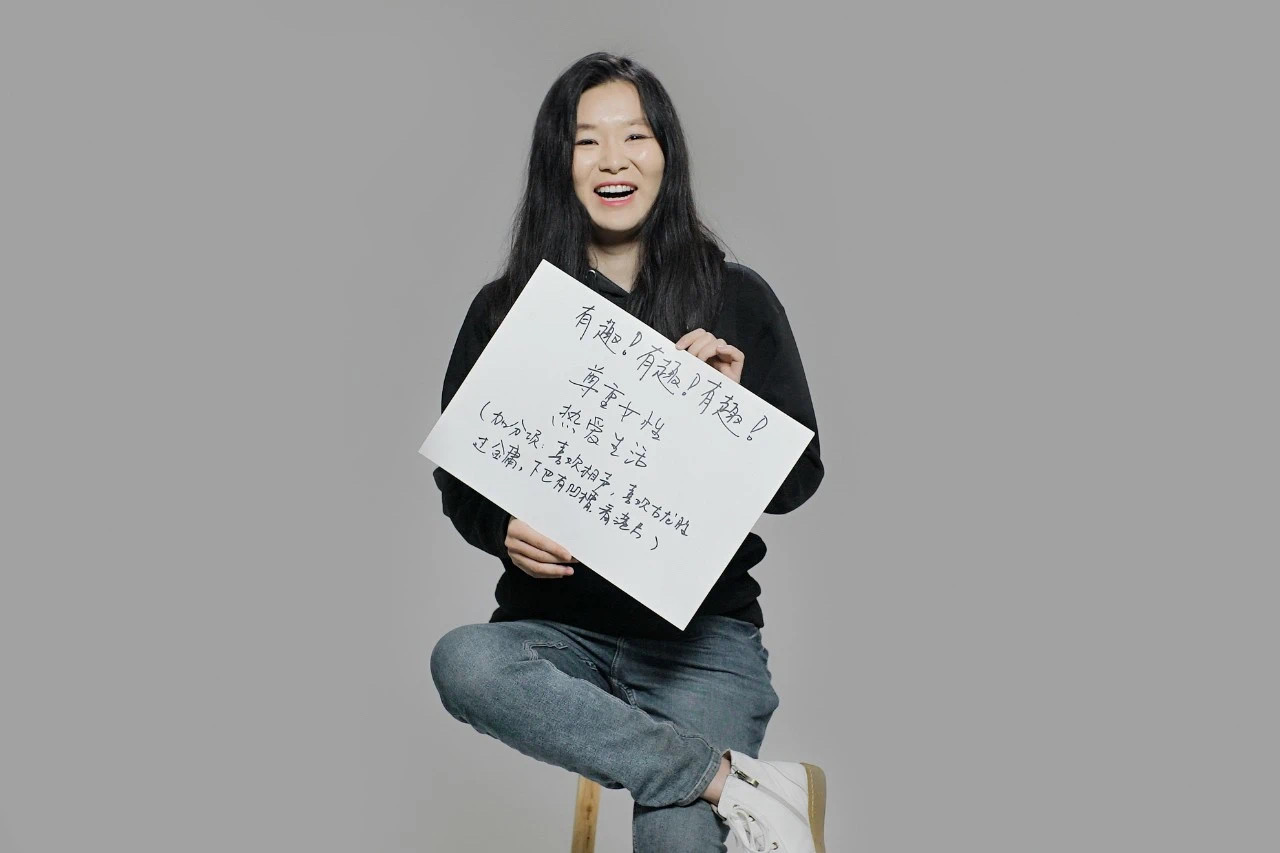 有趣！有趣！有趣！
尊重女性
热爱生活
（加分项：喜欢相声，喜欢古龙胜
过金庸，下巴有凹槽，看港片）